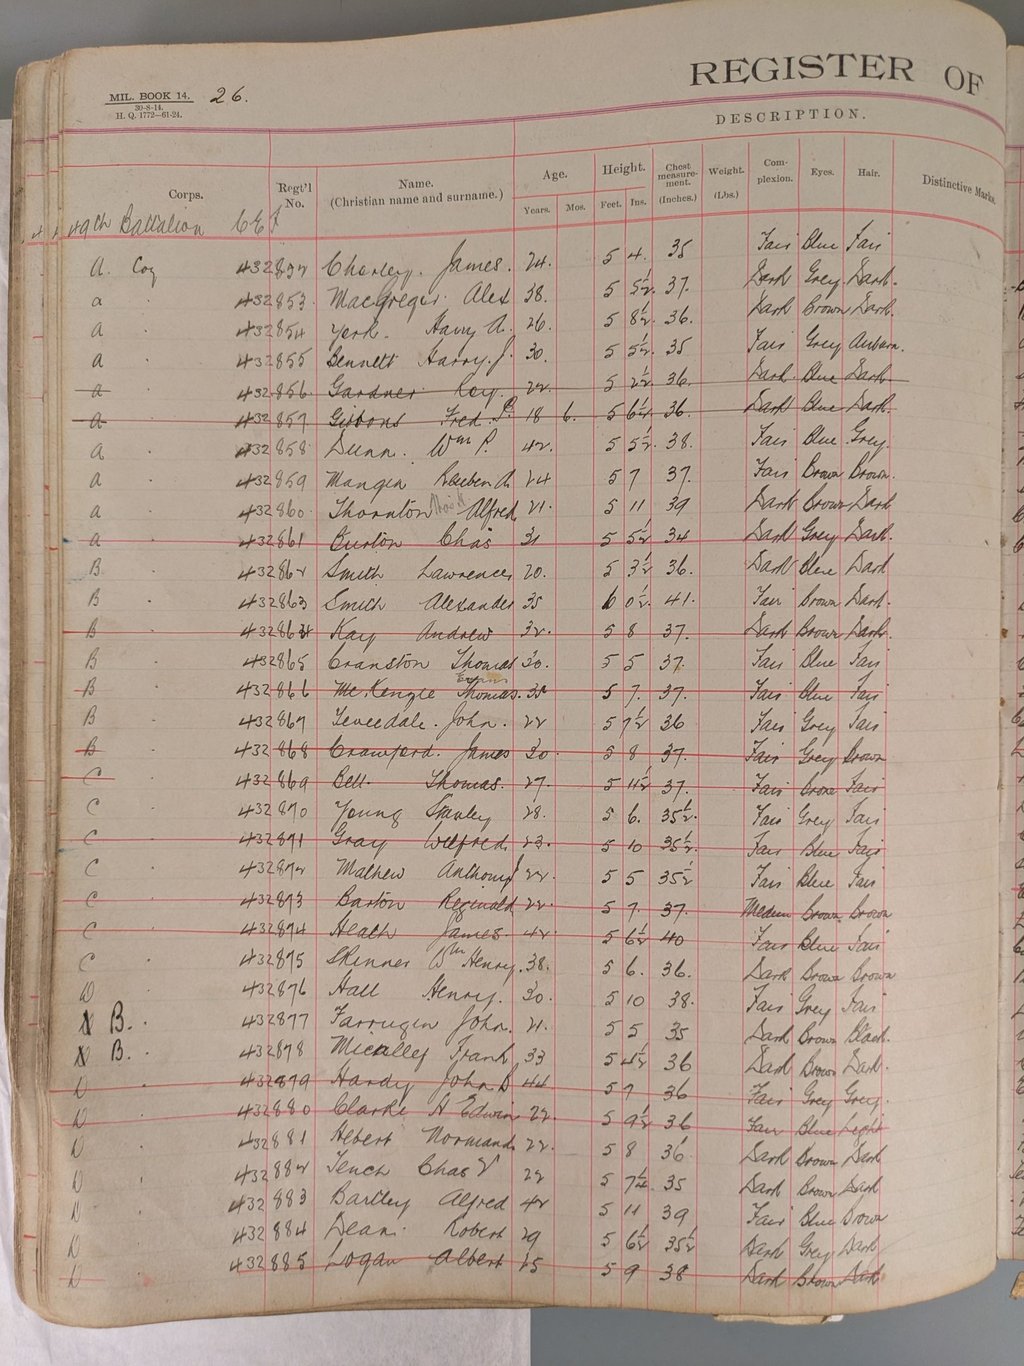 REGISTER OF
MIL. BOOK 14. 26.
30-8-14.
H. Q. 1772—61-24.
DESCRIPTION.
Corps. Regt'l No. Name. (Christian name and surname.) Age. Years. Mos. Height. Feet. Ins. Chest measurement. (Inches.) Weight. (Lbs.) Complexion. Eyes. Hair. Distinctive Marks.
49th Battalion C E F
A. Coy 432852 Charley. James. 24. 5 4. 35 Fair Blue Fair
a 432853 MacGregor Alex 38. 5 5½ 37. Dark Grey Dark.
a 432854 York. Harry A. 26. 5 8½ 36. Dark Brown Dark.
a 432855 Bennett Harry. J. 30. 5 5½ 35 Fair Grey Auburn.
a 432856 Gardner Roy. 22. 5 2½ 36. Dark Blue Dark
a 432857 Gibbons Fred. P. 18 6. 5 6½ 36. Dark Blue Dark.
a 432858 Dunn. Wm P. 42. 5 5½ 38. Fair Blue Grey.
a 432859 Mangin Reuben A. 24 5 7 37. Fair Brown Brown.
a 432860 Thornton Alfred 21. 5 11 39 Dark Brown Dark
a 432861 Burton Chas 31 5 5½ 34 Dark Grey Dark.
B 432862 Smith Lawrence 20. 5 3½ 36. Dark Blue Dark
B 432863 Smith Alexander 35 6 0½ 41. Fair Brown Dark.
B 432864 Kay Andrew 32. 5 8 37. Dark Brown Dark.
B 432865 Cranston Thomas 30. 5 5 37. Fair Blue Fair
B 432866 McKenzie Thomas. 35 5 7. 37. Fair Blue Fair
B 432867 Teveedale. John. 22 5 7½ 36 Fair Grey Fair
B 432868 Crawford. James 30. 5 8 37. Fair Grey Brown
C 432869 Bell. Thomas. 27. 5 11½ 37. Fair Fair
C 432870 Young Stanley 28. 5 6. 35½ Fair Grey Fair
C 432871 Gray Wilfred 23. 5 10 35½ Fair Blue Fair
C 432872 Mathew Anthony J 22. 5 5 35½ Fair Blue Fair
C 432873 Barton Reginald 22. 5 7. 37. Medium Brown Brown
C 432874 Heath James. 42. 5 6½ 40 Fair Blue Fair
C 432875 Skinner Wm Henry. 38. 5 6. 36. Dark Brown Brown
D 432876 Hall Henry. 30. 5 10 38. Fair Grey Fair
B. 432877 Farrugin John. 21. 5 5 35 Dark Brown Black.
B. 432878 Micalley Frank 33 5 4½ 36 Dark Brown Dark.
D 432879 Hardy John B 44 5 7 36 Fair Grey Grey.
D 432880 Clarke H Edwin 22. 5 9½ 36 Fair Blue Light
D 432881 Hebert Normand. 22. 5 8 36 Dark Brown Dark
D 432882 Tench Chas V 22 5 7¼ 35 Dark Brown Dark
D 432883 Bartley Alfred 42 5 11 39 Fair Blue Brown
D 432884 Dean. Robert 29 5 6½ 35½ Dark Grey Dark
D 432885 Logan Albert 25 5 9 38 Dark Brown Dark